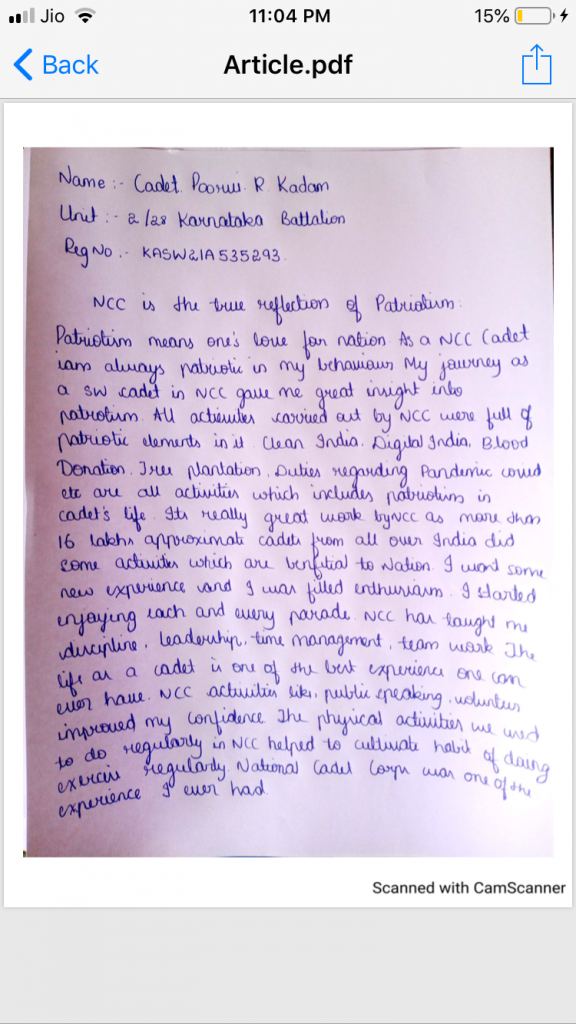 Jio 11:04 PM 15%
Back Article.pdf
Name :- Cadet. R Kadam
Unit :- 2/28 Karnataka Battalion
Reg No :- KASW21A535293.
NCC is the true reflection of Patriotism.
Patriotism means one's love for nation. As a NCC Cadet
iam always patriotic in my behaviour. My journey as
a SW cadet in NCC gave me great insight into
patriotism. All activities carried out by NCC were full of
patriotic elements in it. Clean India. Digital India, Blood
Donation. Tree plantation. Duties regarding Pandemic covid
etc are all activities which includes patriotism in
cadet's life. Its really great work byNCC as more than
16 lakhs approximate cadets from all over India did
some activities which are to Nation. I some
new experience and I was filled enthusiasm. I started
enjoying each and every parade. NCC has taught me
discipline, leadership, time management, team work. The
life as a cadet is one of the best experience one can
ever have. NCC activities like, public speaking, volunteer
improved my confidence. The physical activities we used
to do regularly in NCC helped to cultivate habit of doing
exercise regularly. National Cadet Corps was one of the
experience I ever had.
Scanned with CamScanner